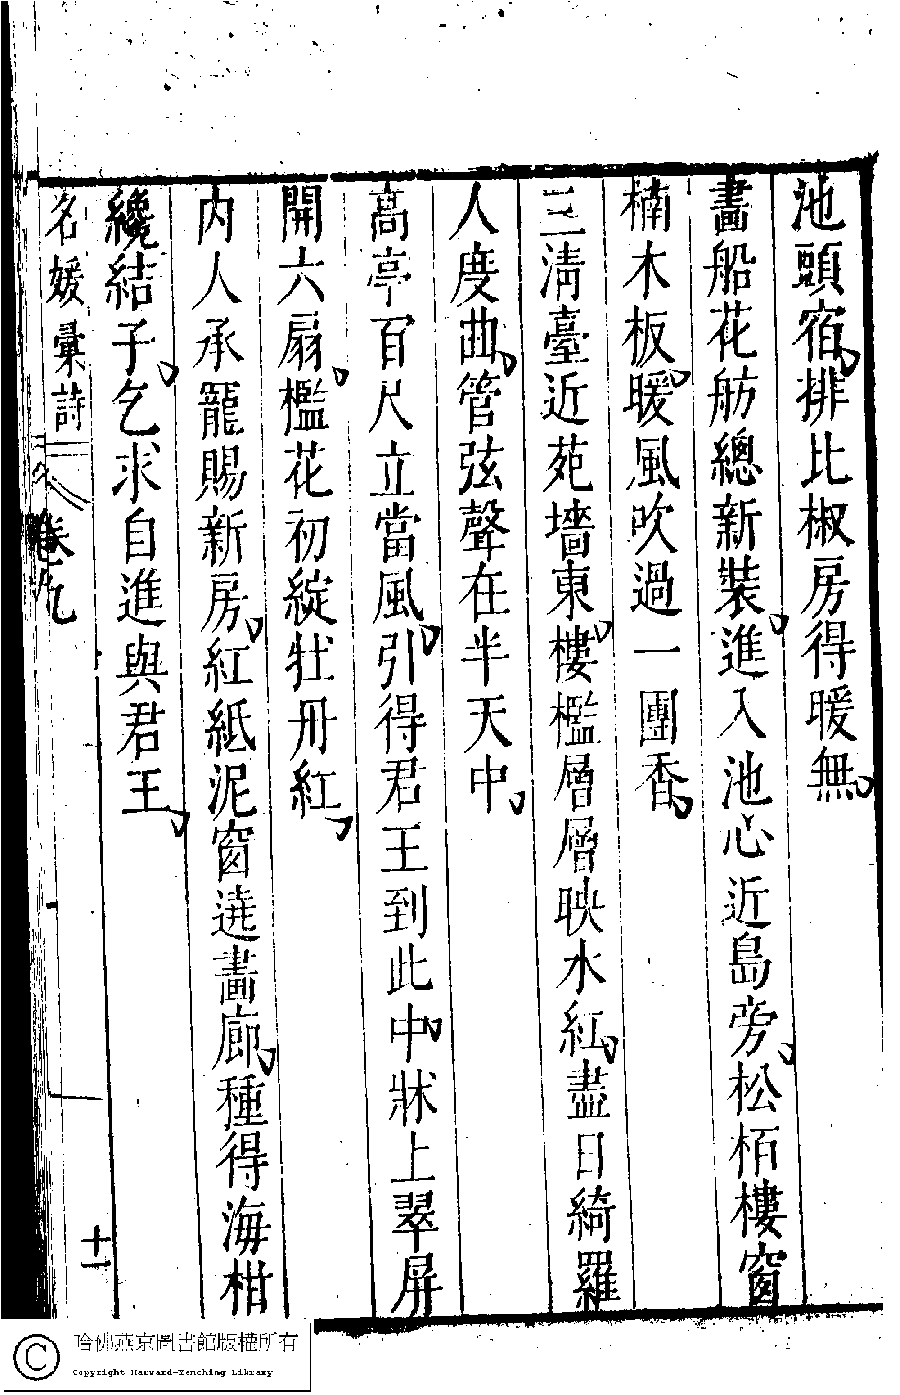 池頭宿排比椒房得暖無
畫船花舫總新裝進入池心近島旁松栢樓窗
楠木板暖風吹過一團香
三清臺近苑墻東樓檻層層映水紅盡日綺羅
人度曲管弦聲在半天中
高亭百尺立當風引得君王到此中牀上翠屏
開六扇檻花初綻牡丹紅
内人承寵賜新房紅紙泥窗遶畫廊種得海柑
纔結子乞求自進與君王
名媛彙詩
卷九
十一
哈佛燕京圖書館版權所有
Copyright Harvard-Yenching Library